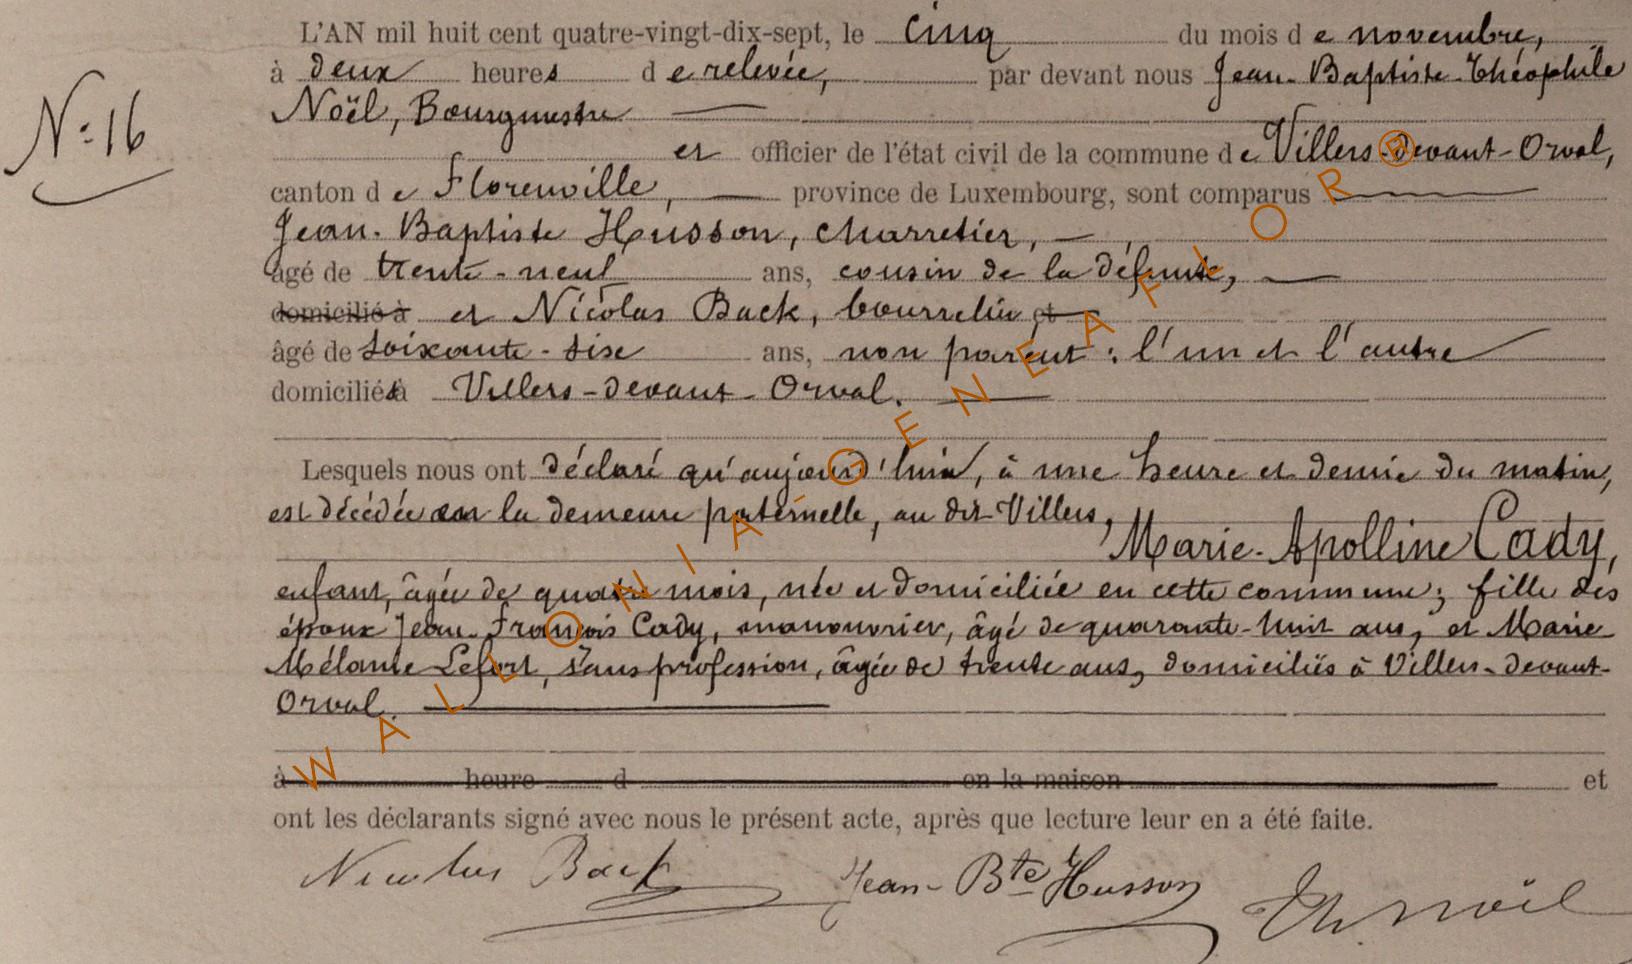 L'AN mil huit cent quatre-vingt-dix-sept, le cinq du mois de novembre,
à deux heures de relevée, par devant nous Jean-Baptiste-Théophile
Noël, Bourgmestre
N° 16
et officier de l'état civil de la commune de Villers-devant-Orval,
canton de Florenville, province de Luxembourg, sont comparus
Jean-Baptiste Husson, charretier,
âgé de trente-neuf ans, cousin de la défunte,
domicilié à et Nicolas Back, bourrelier, et
âgé de soixante-sise ans, non parent : l'un et l'autre
domiciliés à Villers-devant-Orval.
Lesquels nous ont déclaré qu'aujourd'hui, à une heure et demie du matin,
est décédée en la demeure paternelle, au dit Villers,
Marie-Apolline Cady,
enfant, âgée de quatre mois, née et domiciliée en cette commune; fille des
époux Jean-François Cady, manouvrier, âgé de quarante-huit ans, et Marie-
Mélanie Lefort, sans profession, âgée de trente ans, domiciliés à Villers-devant-
Orval.
à heure d en la maison et
ont les déclarants signé avec nous le présent acte, après que lecture leur en a été faite.
Nicolas Back Jean-Bte Husson Th. Noël
WALLONIA-GENEAFLOR®